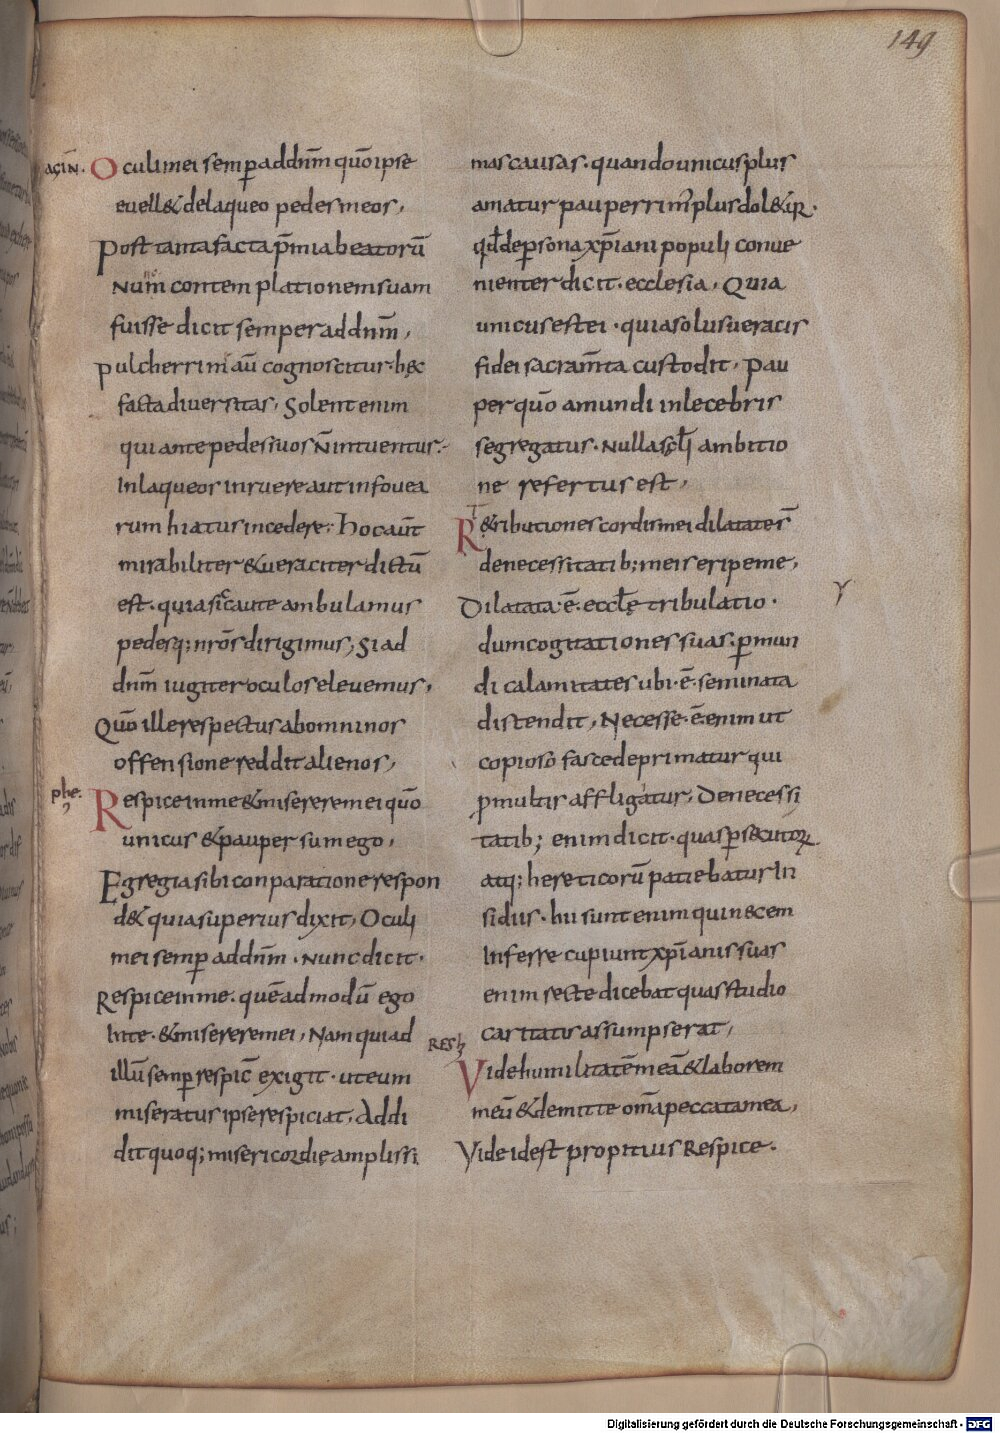 149
açin. Oculi mei semp̱ addnm̄ quō ipse
euell& delaqueo pedes meos,
Post tanta facta p̄mia beatorū
Num̄ contemplationem suam
fuisse dicit semper addnm̄,
pulcherrim aū cognoscitur. hęc
facta diuersitas, Solent enim
qui ante pedes suos N̄ intuentur.
Inlaqueos inruere aut infouea
rum hiatus incedere; hoc aūt
mirabiliter &ueraciter dictū
est. quia sic caute ambulamus
pedesq; nrōs dirigimus, si ad
dnm̄ iugiter oculos eleuemus,
Quō ille respectus ab omni nos
offensione reddit alienos,
phe. Respice inme &miserere mei quō
unicus &pauper sum ego,
Egregia sibi conparatione respon
d& quia superius dixit, Oculi
mei semp̱ addnm̄. Nunc dicit.
Respice inme. quēadmodū ego
inte. &miserere mei, Nam quiad
illū semp̱ respic̄ exigit. uteum
miseratus ipse respiciat, Addi
dit quoq; misericordię amplissi
mas causas. quando unicus plus
amatur pauperrim̄ plus dol&ur.
qd̄ dep̱sona xp̄iani populi conue
nienter dicit. ecclesia, Quia
unicus est ei. quia solus ueracis
fidei sacram̄ta custodit, Pau
per quō amundi inlecebris
segregatus. Nulla scl̄i ambitio
ne refertus est,
R&ributiones cordis mei dilatatę s̄
denecessitatib; meis eripe me,
Dilatata. ē. eccl̄ę tribulatio.
dum cogitationes suas. p̱mun
di calamitates ubi. ē. seminata
distendit, Necesse. ē. enim ut
copioso fasce deprimatur qui
p̱multis affligatur, Denecessi
tatib; enim dicit. quas p̱secutorꝝ
atq; hereticorū patiebatur In
sidiis. hii sunt enim qui necem
Inferre cupiunt xp̄ianis suas
enim recte dicebat quas studio
caritatis assumpserat,
Resh Vide humilitatē meā &laborem
meū &demitte om̄a peccata mea,
Vide idest propitius Respice.
Digitalisierung gefördert durch die Deutsche Forschungsgemeinschaft - DFG